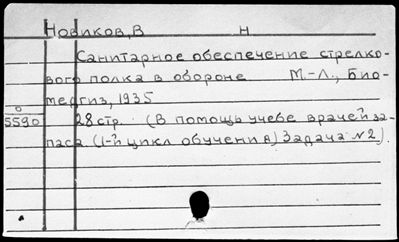 Новиков, В Н
Санитарное обеспечение стрелко-
вого полка в обороне М.-Л., Био-
медгиз, 1935
о
5590
28 стр. (В помощь учебе врачей за-
паса (1-й цикл обучения) Задача №2).